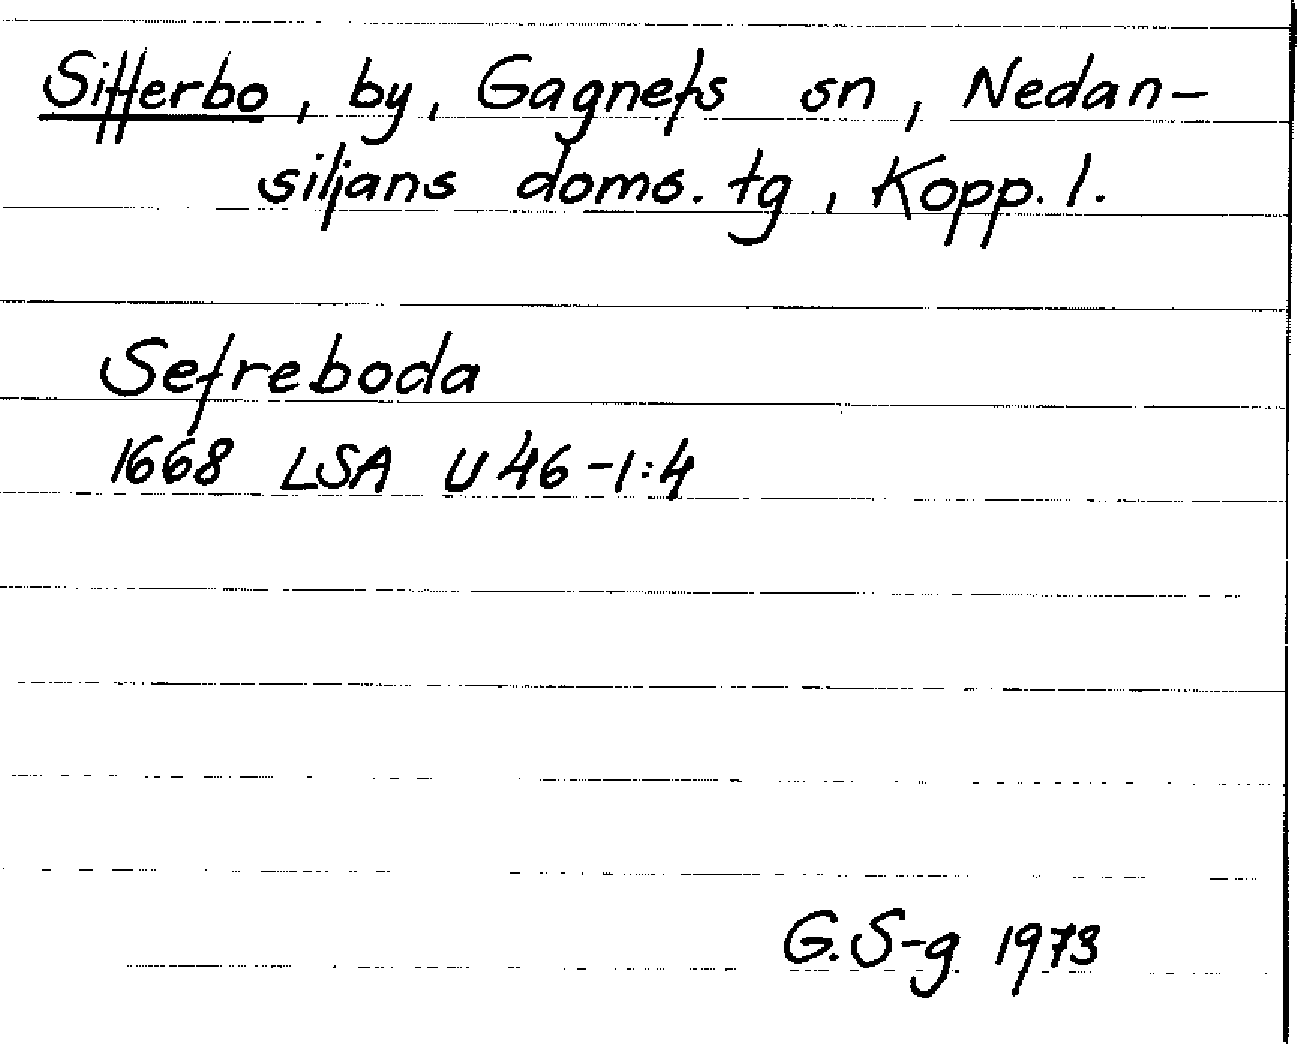 Sifferbo, by, Gagnefs sn, Nedan-
siljans doms. tg, Kopp. l.
Sefreboda
1668 LSA U 46-1:4
G. S-g 1973